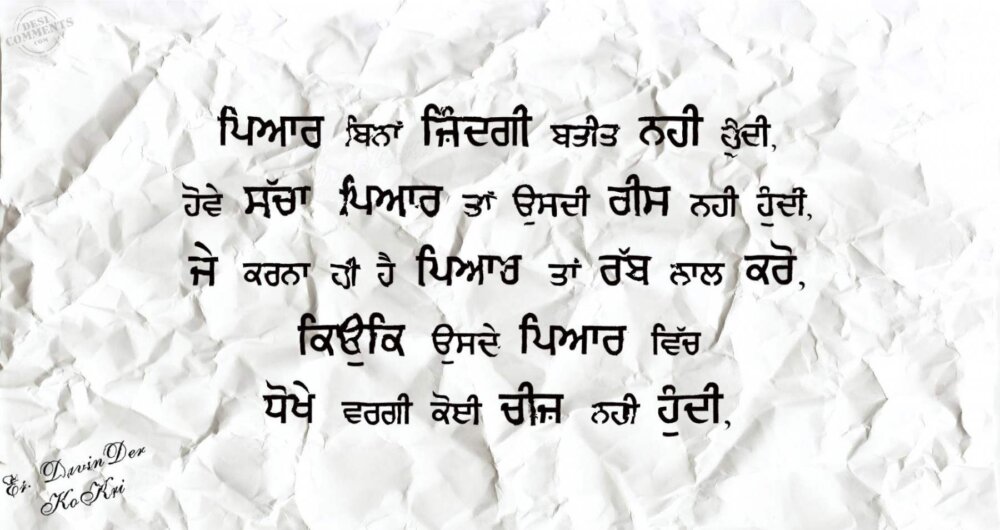 DESI
COMMENTS
.COM
ਪਿਆਰ ਬਿਨਾਂ ਜ਼ਿੰਦਗੀ ਬਤੀਤ ਨਹੀ ਹੁੰਦੀ,
ਹੋਵੇ ਸੱਚਾ ਪਿਆਰ ਤਾਂ ਉਸਦੀ ਰੀਸ ਨਹੀ ਹੁੰਦੀ,
ਜੇ ਕਰਨਾ ਹੀ ਹੈ ਪਿਆਰ ਤਾਂ ਰੱਬ ਨਾਲ ਕਰੋ,
ਕਿਉਂਕਿ ਉਸਦੇ ਪਿਆਰ ਵਿੱਚ
ਧੋਖੇ ਵਰਗੀ ਕੋਈ ਚੀਜ਼ ਨਹੀ ਹੁੰਦੀ,
Er. DavinDer
KoKri